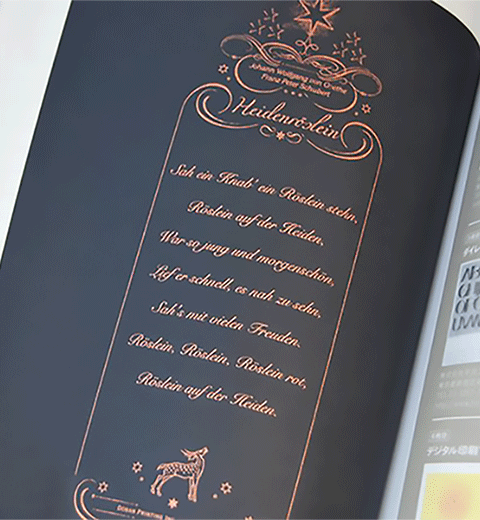 Johann Wolfgang von Goethe
Franz Peter Schubert
Heidenröslein
Sah ein Knab' ein Röslein stehn,
Röslein auf der Heiden,
War so jung und morgenschön,
Lief er schnell, es nah zu sehn,
Sah's mit vielen Freuden.
Röslein, Röslein, Röslein rot,
Röslein auf der Heiden.
デジタル印刷